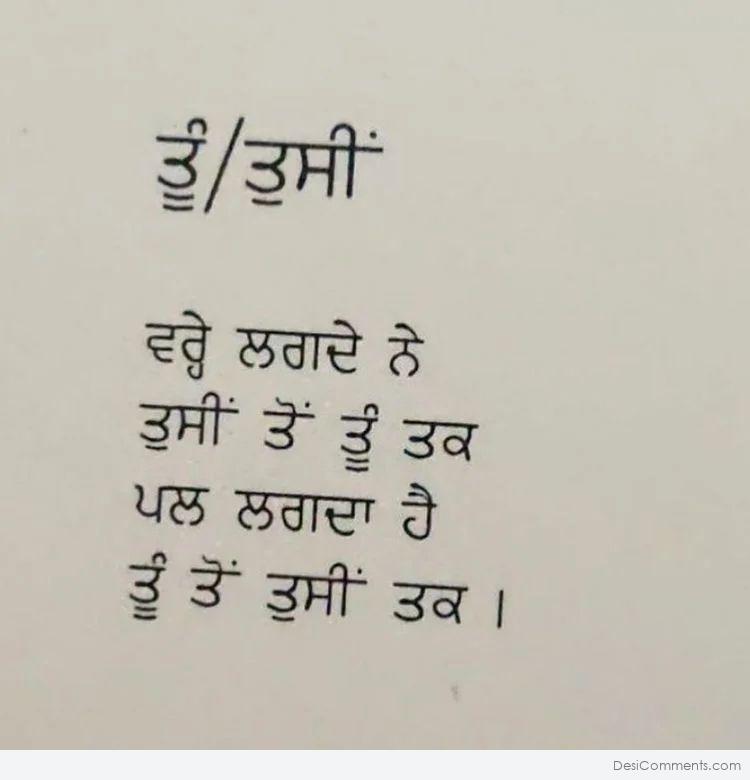 ਤੂੰ/ਤੁਸੀਂ
ਵਰ੍ਹੇ ਲਗਦੇ ਨੇ
ਤੁਸੀਂ ਤੋਂ ਤੂੰ ਤਕ
ਪਲ ਲਗਦਾ ਹੈ
ਤੂੰ ਤੋਂ ਤੁਸੀਂ ਤਕ ।
DesiComments.com